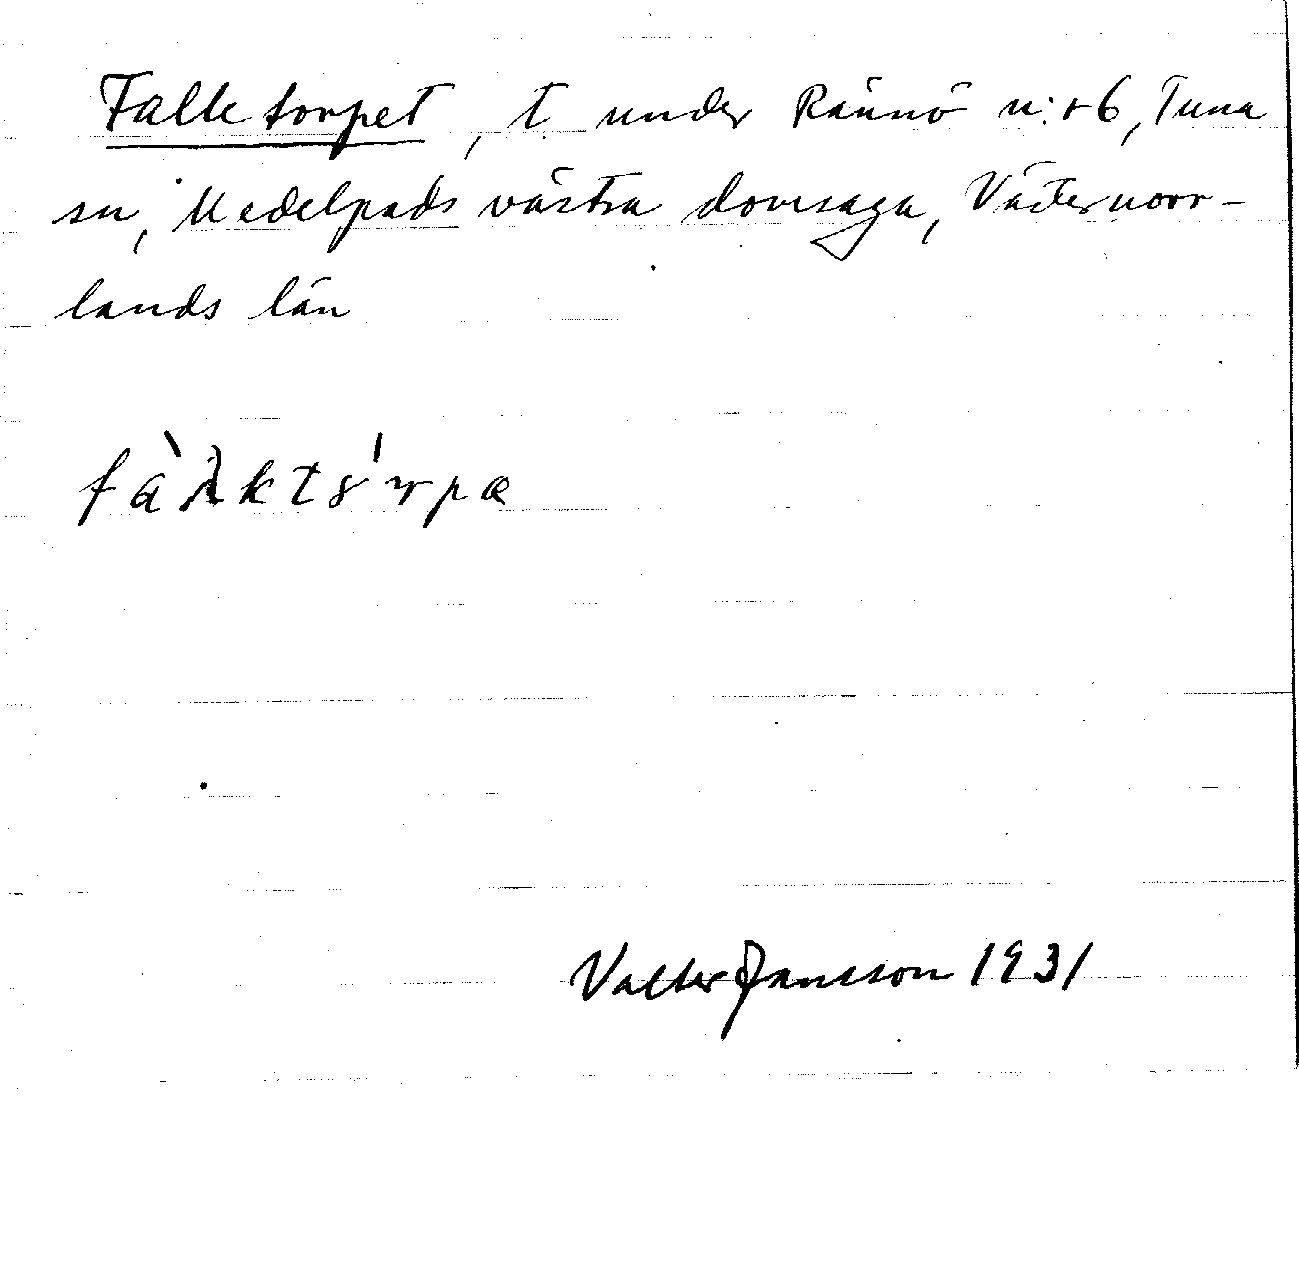 Falketorpet, t under Rännö n:r 6, Tuna
sn, Medelpads västra domsaga, Västernorr-
lands län
Valter Jansson 1931